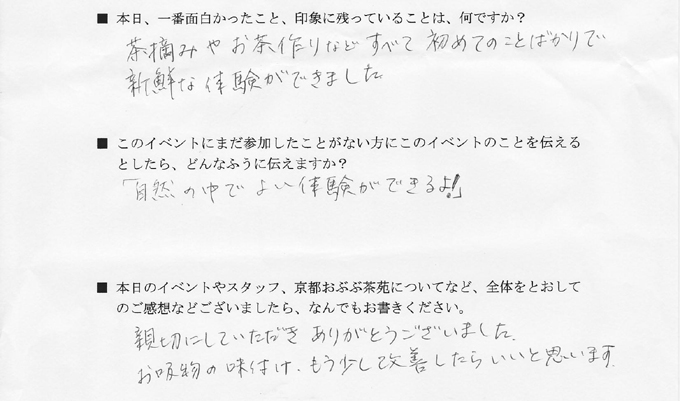 ■ 本日、一番面白かったこと、印象に残っていることは、何ですか？
茶摘みやお茶作りなどすべて初めてのことばかりで
新鮮な体験ができました。
■ このイベントにまだ参加したことがない方にこのイベントのことを伝える
としたら、どんなふうに伝えますか？
「自然の中でよい体験ができるよ!!」
■ 本日のイベントやスタッフ、京都おぶぶ茶苑についてなど、全体をとおして
のご感想などございましたら、なんでもお書きください。
親切にしていただきありがとうございました。
お吸物の味付け、もう少し改善したらいいと思います。